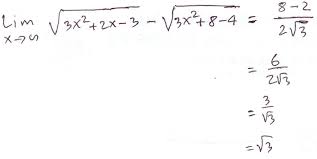 Lim x→∞ √(3x²+2x-3) - √(3x²+8-4) = (8-2)/(2√3)
= 6/(2√3)
= 3/√3
= √3